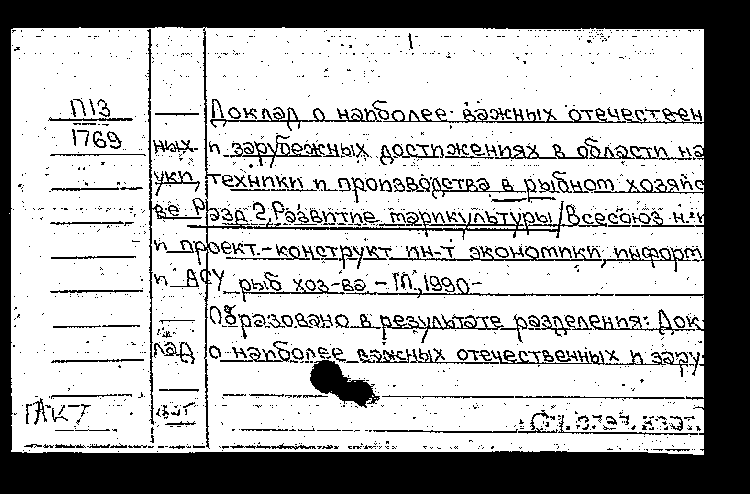 П13 Доклад о наиболее важных отечествен
1769 ных и зарубежных достижениях в области на
уки, техники и производства в рыбном хозяйс
ве Разд 2, Развитие марикультуры/Всесоюз н.-и
и проект.-конструкт ин-т экономики, информ
и АСУ рыб хоз-ва - М., 1990-
Образовано в результате разделения: Док
лад о наиболее важных отечественных и зару
ГАКТ